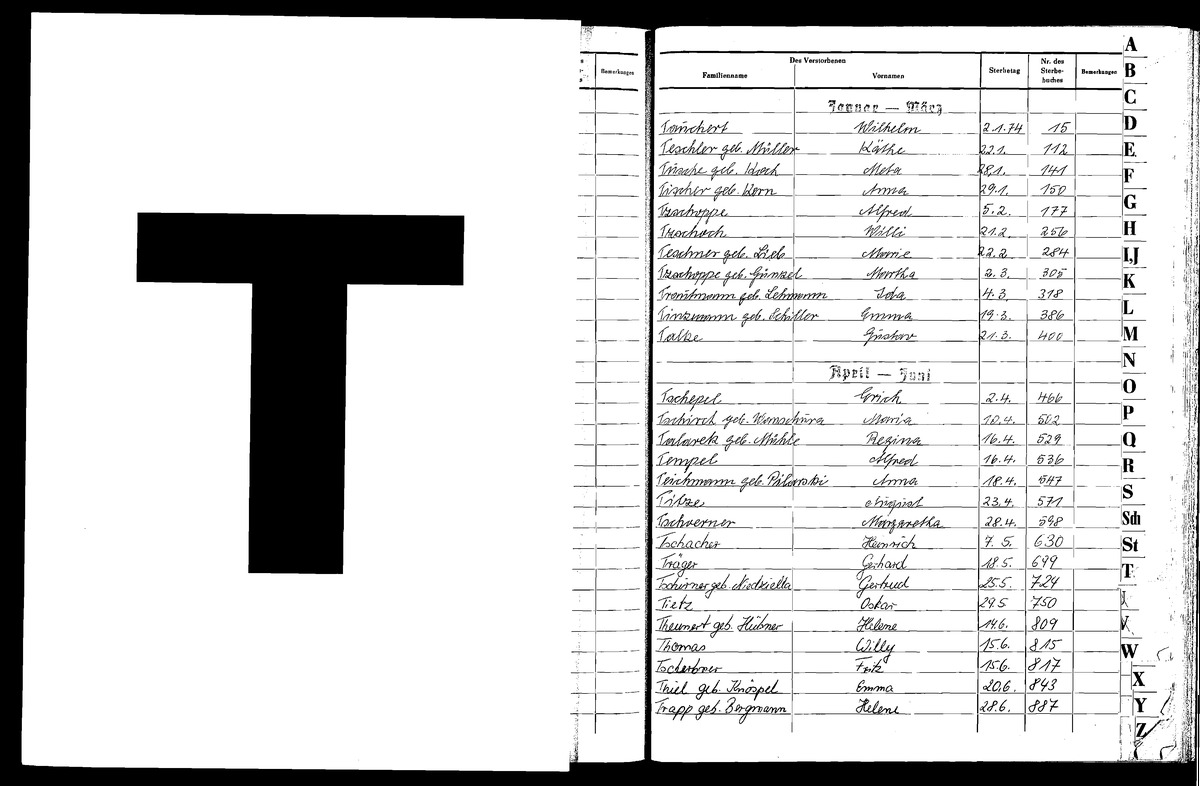 T
Bemerkungen
Des Verstorbenen
Familienname Vornamen Sterbetag Nr. des Sterbe-buches Bemerkungen
Januar — März
Tauchert Wilhelm 2.1.74 15
Teschler geb. Müller Käthe 22.1. 112
Tusche geb. Koch Meta 28.1. 141
Tischer geb. Korn Anna 29.1. 150
Tzschoppe Alfred 5.2. 177
Tzschach Willi 21.2. 256
Teschner geb. Lieb Marie 22.2. 284
Tzschoppe geb. Günzel Martha 2.3. 305
Trautmann geb. Lehmann Ida 4.3. 318
Tinzmann geb. Schiller Emma 19.3. 386
Tatze Gustav 21.3. 400
April — Juni
Tschepel Erich 2.4. 466
Tschirch geb. Wanschura Maria 10.4. 502
Tatarek geb. Mühle Regina 16.4. 529
Tempel Alfred 16.4. 536
Teichmann geb. Pilarski Anna 18.4. 547
Titze August 23.4. 571
Tschverner Margaretha 28.4. 598
Tschacher Heinrich 7.5. 630
Träger Gerhard 18.5. 699
Tschirner geb. Niedzielka Gertrud 25.5. 724
Tietz Oskar 29.5 750
Theunert geb. Hübner Helene 14.6. 809
Thomas Willy 15.6. 815
Tscherbner Fritz 15.6. 817
Thiel geb. Knöspel Emma 20.6. 843
Trapp geb. Bergmann Helene 28.6. 887
A
B
C
D
E
F
G
H
I,J
K
L
M
N
O
P
Q
R
S
Sch
St
T
V
W
X
Y
Z